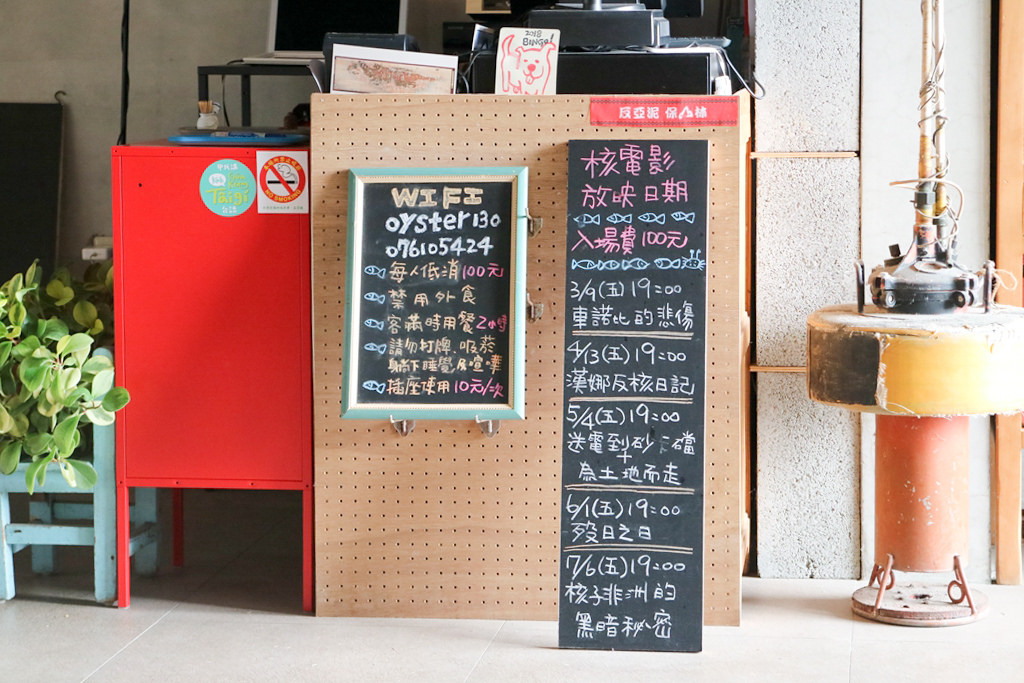 2018
BINGO!
反亞泥 保山林
Taigi
NO SMOKING
WIFI
oyster130
076105424
每人低消100元
禁用外食
客滿時用餐2小時
請勿打牌、吸菸
躺下睡覺及喧嘩
插座使用10元/次
核電影
放映日期
入場費100元
3/9(五)19:00
車諾比的悲傷
4/13(五)19:00
漢娜反核日記
5/4(五)19:00
送電到砂
+
為土地而走
6/1(五)19:00
歿日之日
7/6(五)19:00
核子非洲的
黑暗秘密